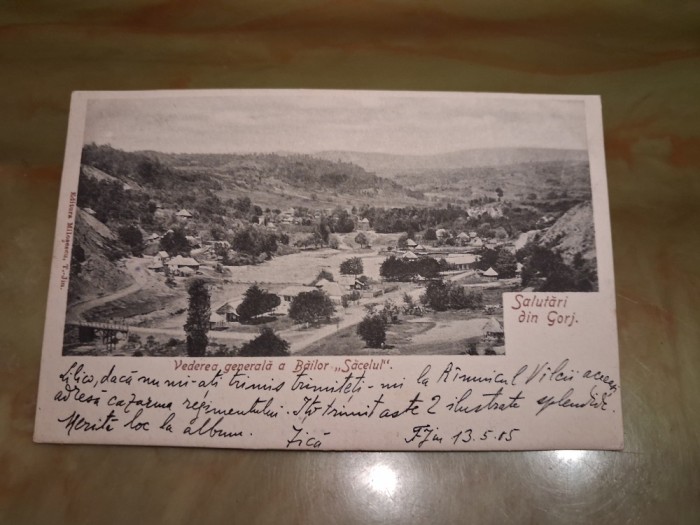 Editura Miloşescu, T.-Jiu.
Salutări
din Gorj.
Vederea generală a Băilor „Săcelul".
Lilico, dacă nu mi-ati trimis trimiteti-mi la Rîmnicul Vîlcii aceeaşi
adresă cazarma regimentului. Iti trimit aste 2 ilustrate splendide.
Merită loc la album. Jică 13.5.05